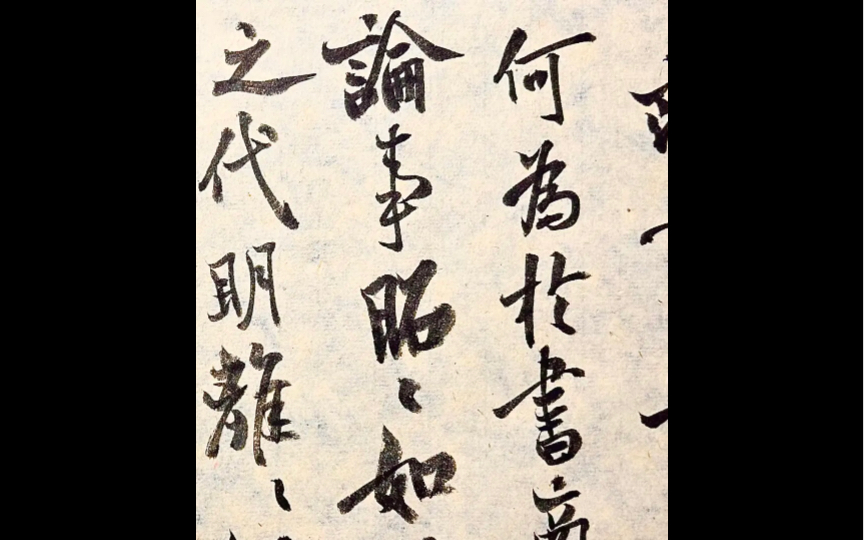 何為於書商
論事昭〻如
之代明離〻